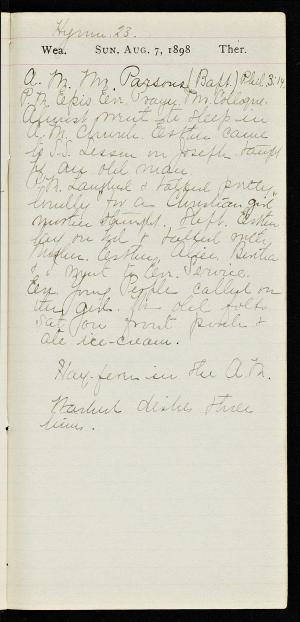 Hymn 23.
Wea. SUN. AUG. 7, 1898 Ther.
A. M. Mr. Parsons (Bapt.) Phil. 3:14.
P. M. Epis Ev. Mr. Cologne.
August went to sleep in
A. M. Church. Esther came
to S.S. Lesson on Joseph taught
by an old man.
P.M. Laughed & talked pretty
loudly "for a Christian girl"
mother thought. Slept. Esther
lay on bed & talked with
Mother. Esther, Alice, Bertha
& I went to Ev. Service.
Ev. Young People called on
the girls. The old folks
sat on front porch &
ate ice-cream.
Hay-fever in the A.M.
Washed dishes three
times.